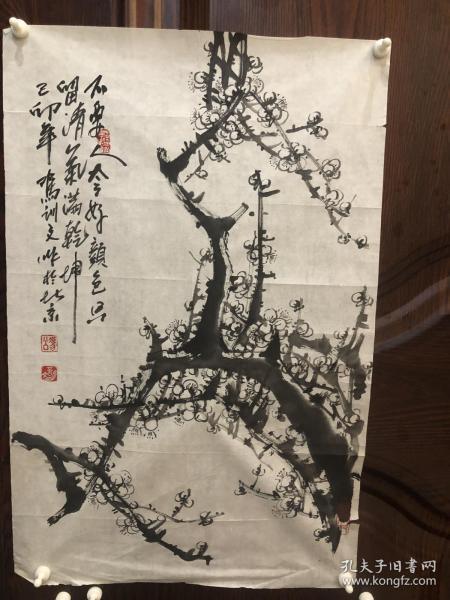 不要人夸好颜色只
留清气满乾坤
己卯年 训文作於北京
孔夫子旧书网
www.kongfz.com